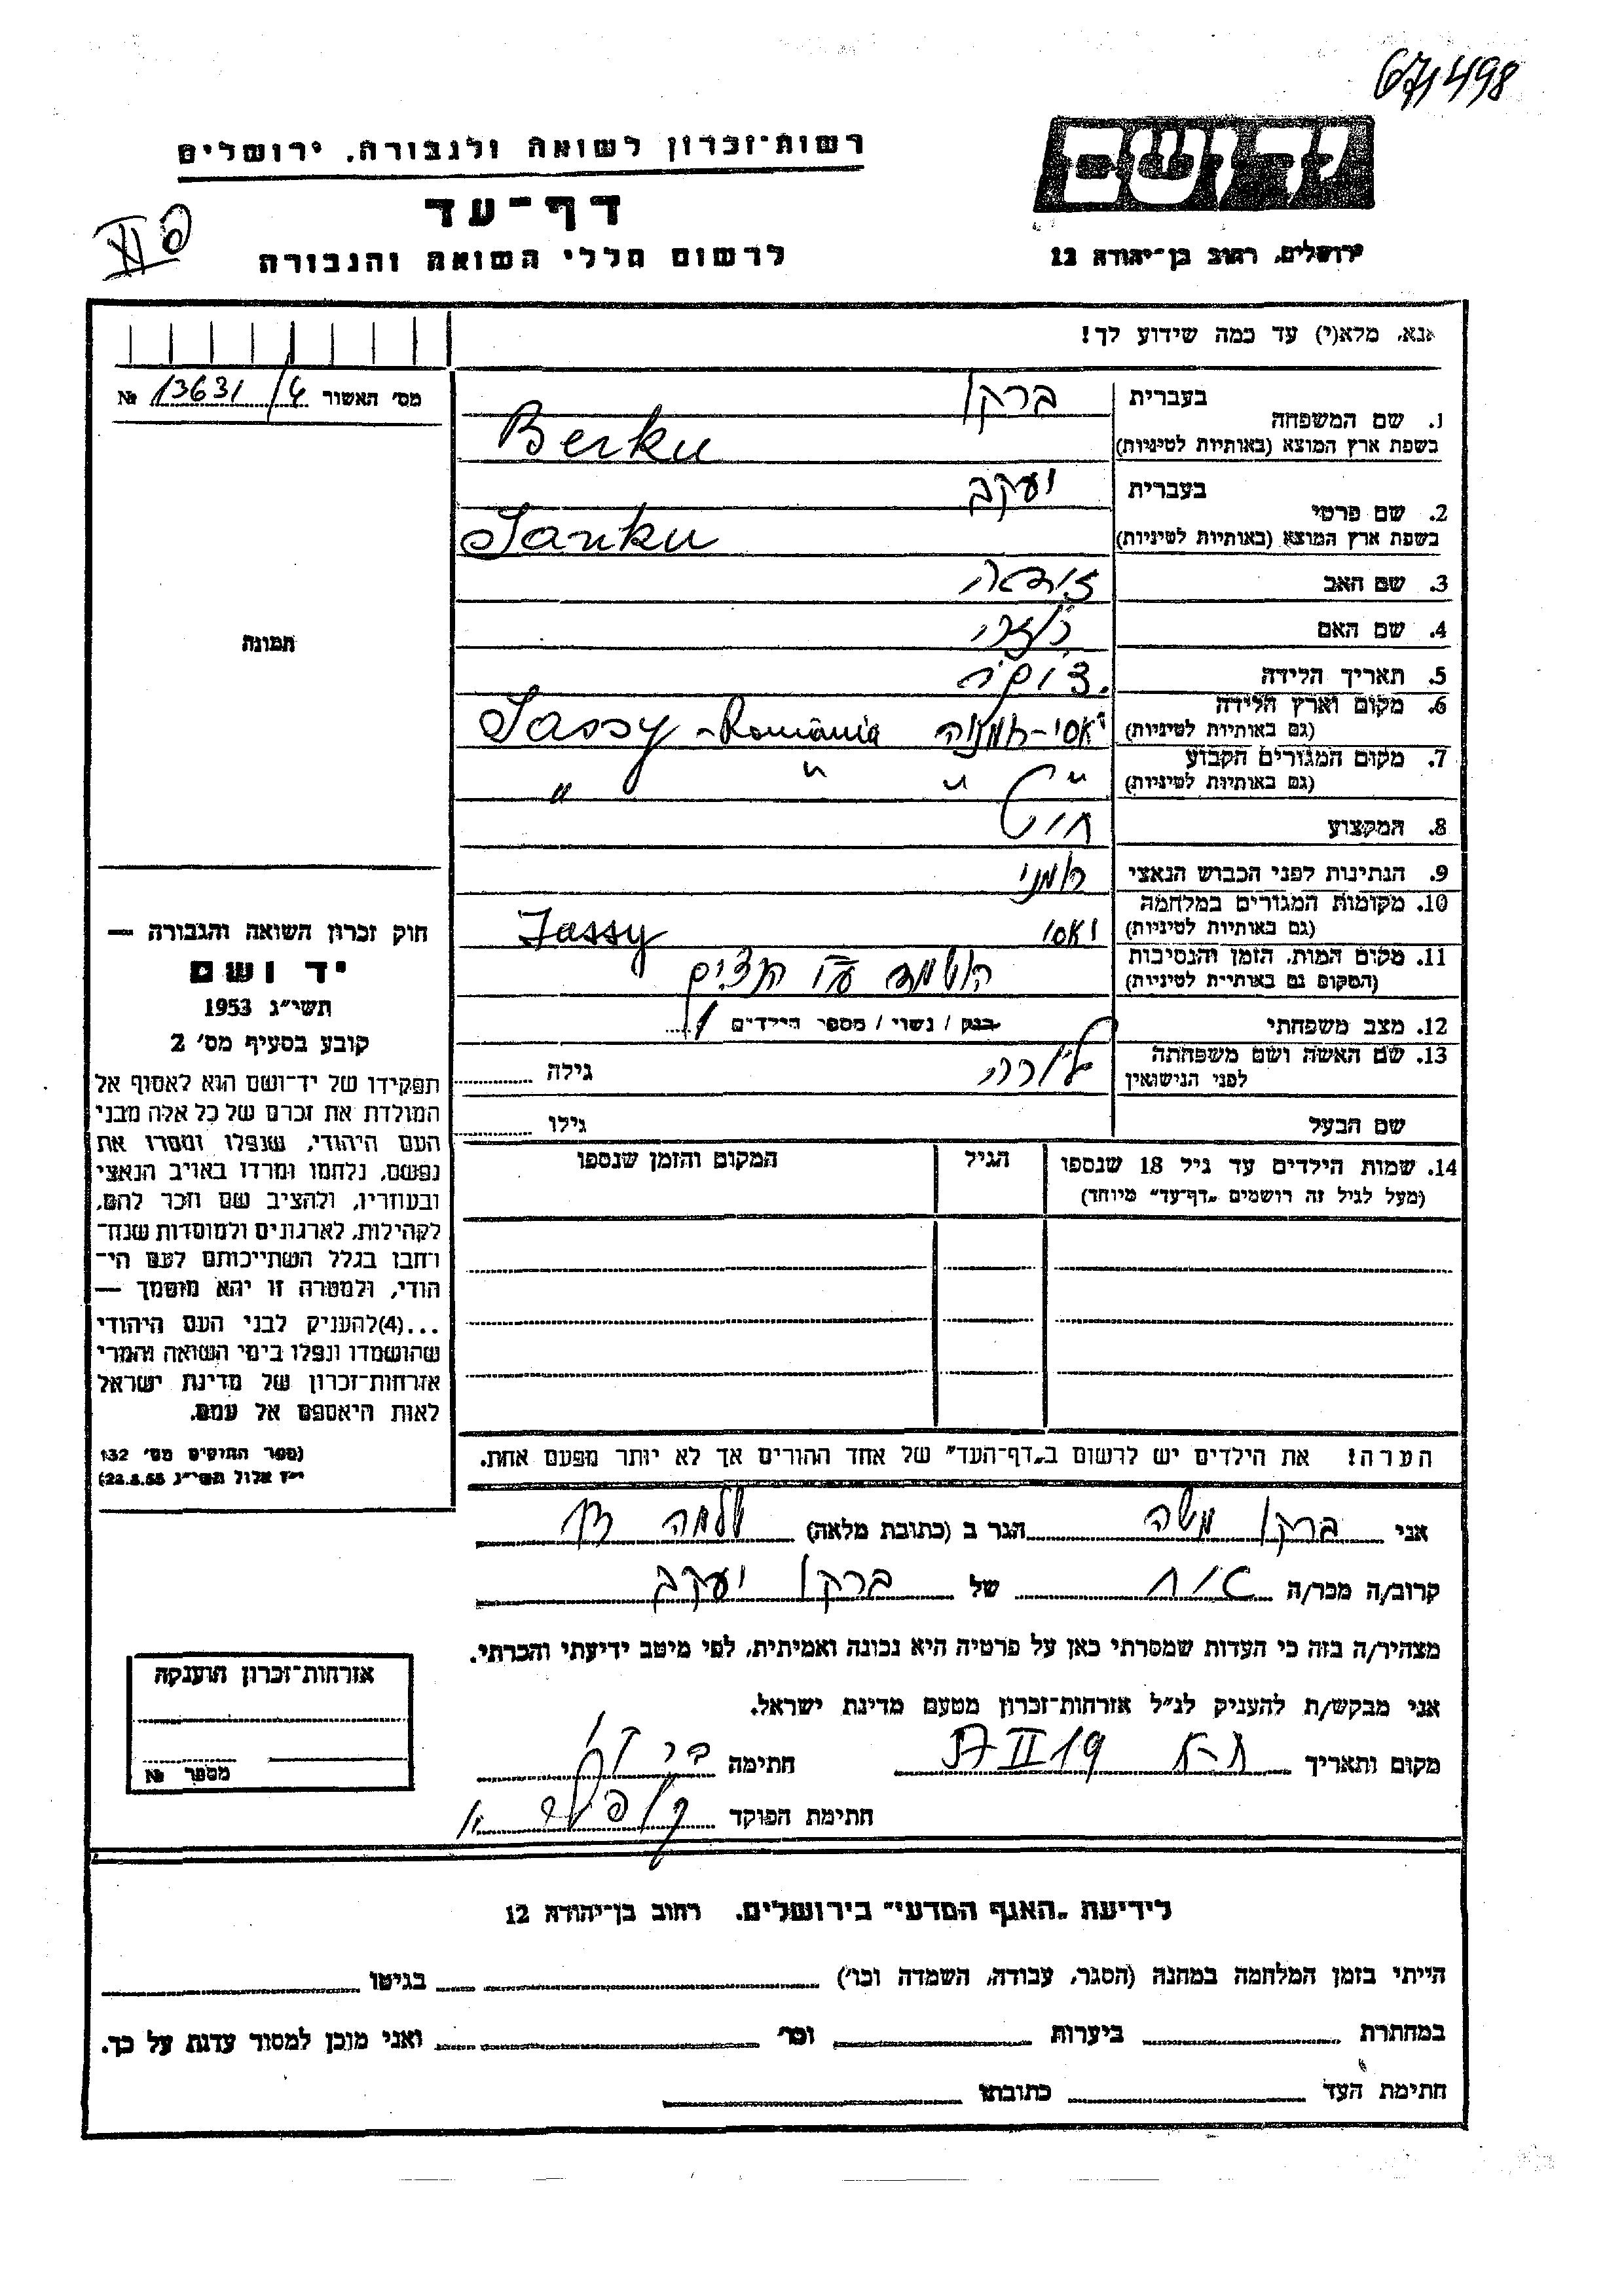 671498
רשות־זכרון לשואה ולגבורה, ירושלים
יד ושם
דף־עד
לרשום חללי השואה והגבורה
ירושלים, רחוב בן־יהודה 12
אנא, מלא(י) עד כמה שידוע לך!
מס׳ האשור № 13631/4
בעברית ברקו
1. שם המשפחה
בשפת ארץ המוצא (באותיות לטיניות) Berku
בעברית יעקב
2. שם פרטי
בשפת ארץ המוצא (באותיות לטיניות) Janku
3. שם האב
4. שם האם
5. תאריך הלידה
6. מקום וארץ הלידה יאסי-רומניה Jassy - România
(גם באותיות לטיניות)
7. מקום המגורים הקבוע " " " "
(גם באותיות לטיניות)
8. המקצוע חייט
9. הנתינות לפני הכבוש הנאצי רומני
10. מקומות המגורים במלחמה יאסי Jassy
(גם באותיות לטיניות)
11. מקום המות, הזמן והנסיבות הושמד ע"י הנאצים
(המקום גם באותיות לטיניות)
12. מצב משפחתי רווק / נשוי / מספר הילדים 1
13. שם האשה ושם משפחתה גילה
לפני הנישואין
שם הבעל גילו
14. שמות הילדים עד גיל 18 שנספו הגיל המקום והזמן שנספו
(מעל לגיל זה רושמים „דף־עד” מיוחד)
הערה! את הילדים יש לרשום ב„דף־העד” של אחד ההורים אך לא יותר מפעם אחת.
תמונה
חוק זכרון השואה והגבורה —
יד ושם
תשי״ג 1953
קובע בסעיף מס׳ 2
תפקידו של יד־ושם הוא לאסוף אל
המולדת את זכרם של כל אלה מבני
העם היהודי, שנפלו ומסרו את
נפשם, נלחמו ומרדו באויב הנאצי
ובעוזריו, ולהציב שם וזכר להם,
לקהילות, לארגונים ולמוסדות שנח־
רחבו בגלל השתייכותם לעם הי־
הודי, ולמטרה זו יהא מוסמך —
...(4)להעניק לבני העם היהודי
שהושמדו ונפלו בימי השואה והמרי
אזרחות־זכרון של מדינת ישראל
לאות היאספם אל עמם.
(ספר החוקים מס׳ 132
י״ז אלול תשי״ג 28.8.55)
אני ברקו משה הגר ב (כתובת מלאה)
קרוב/ה מכר/ה אח של ברקו יעקב
מצהיר/ה בזה כי העדות שמסרתי כאן על פרטיה היא נכונה ואמיתית, לפי מיטב ידיעתי והכרתי.
אני מבקש/ת להעניק לנ״ל אזרחות־זכרון מטעם מדינת ישראל.
מקום ותאריך חתימה
חתימת הפוקד
אזרחות־זכרון הוענקה
מספר №
לידיעת „האגף המדעי” בירושלים. רחוב בן־יהודה 12
הייתי בזמן המלחמה במחנה (הסגר, עבודה, השמדה וכו׳) בגיטו
במחתרת ביערות וכו׳ ואני מוכן למסור עדות על כך.
חתימת העד כתובתו